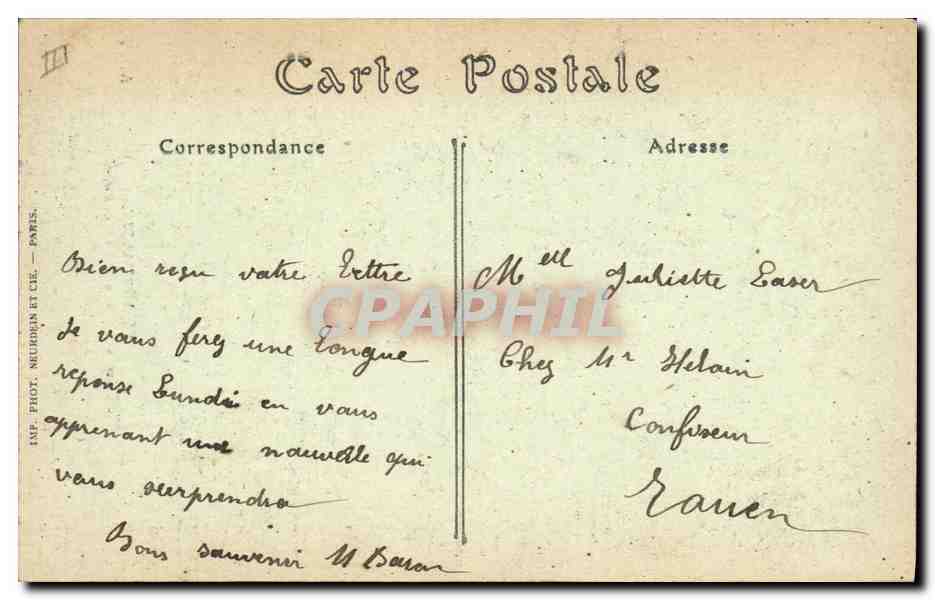 Carte Postale
Correspondance
Bien reçu votre lettre
Je vous ferez une longue
reponse Lundi en vous
apprenant une nouvelle qui
vous surprendra
Bons souvenir M
Adresse
Mell Juliette
Chez Mr Heloin
Confiseur
Rouen
IMP. PHOT. NEURDEIN ET CIE. — PARIS.
CPAPHIL